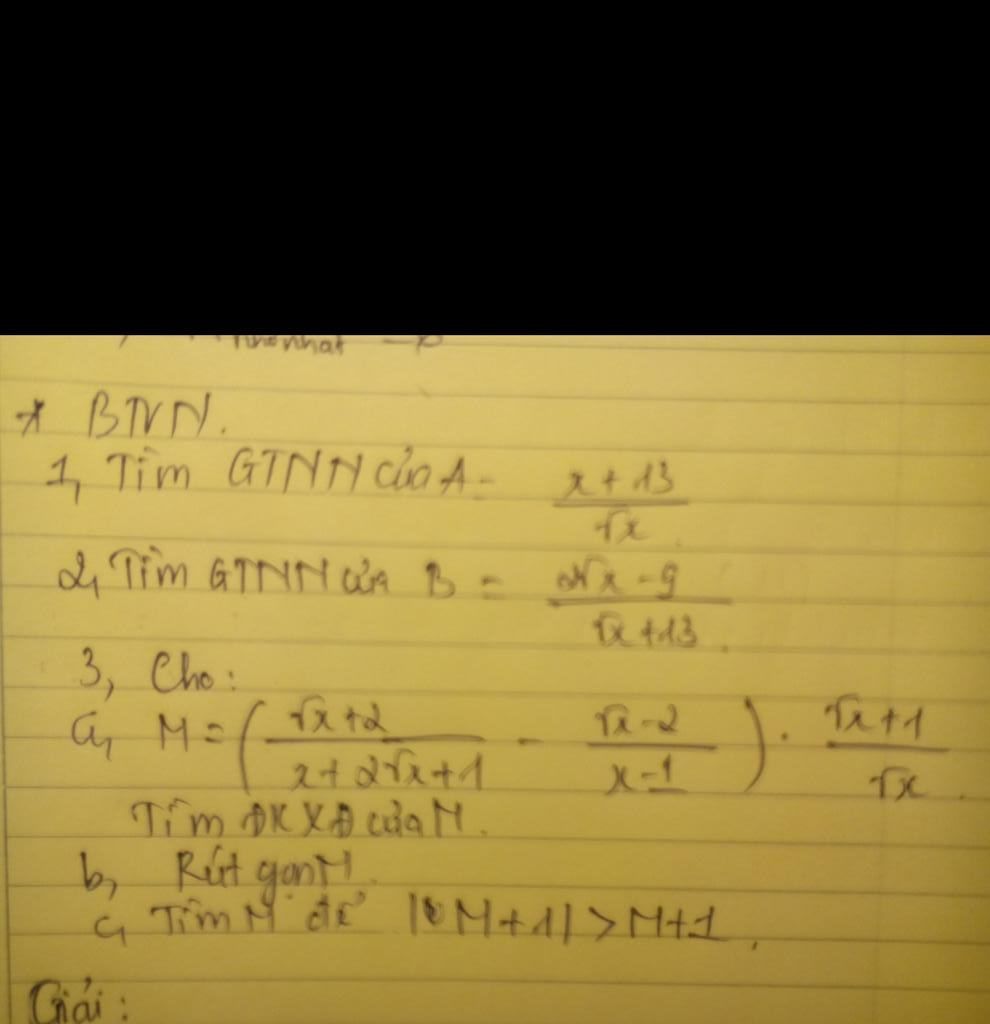 nhỏ nhất
* BTVN.
1, Tìm GTNN của A = x + 13 / √x
2, Tìm GTNN của B = 2√x - 9 / √x + 13
3, Cho:
a, M = ( √x + 2 / x + 2√x + 1 - √x - 2 / x - 1 ) . √x + 1 / √x
Tìm ĐKXĐ của M.
b, Rút gọn M.
c, Tìm M để |M + 1| > M + 1
Giải: